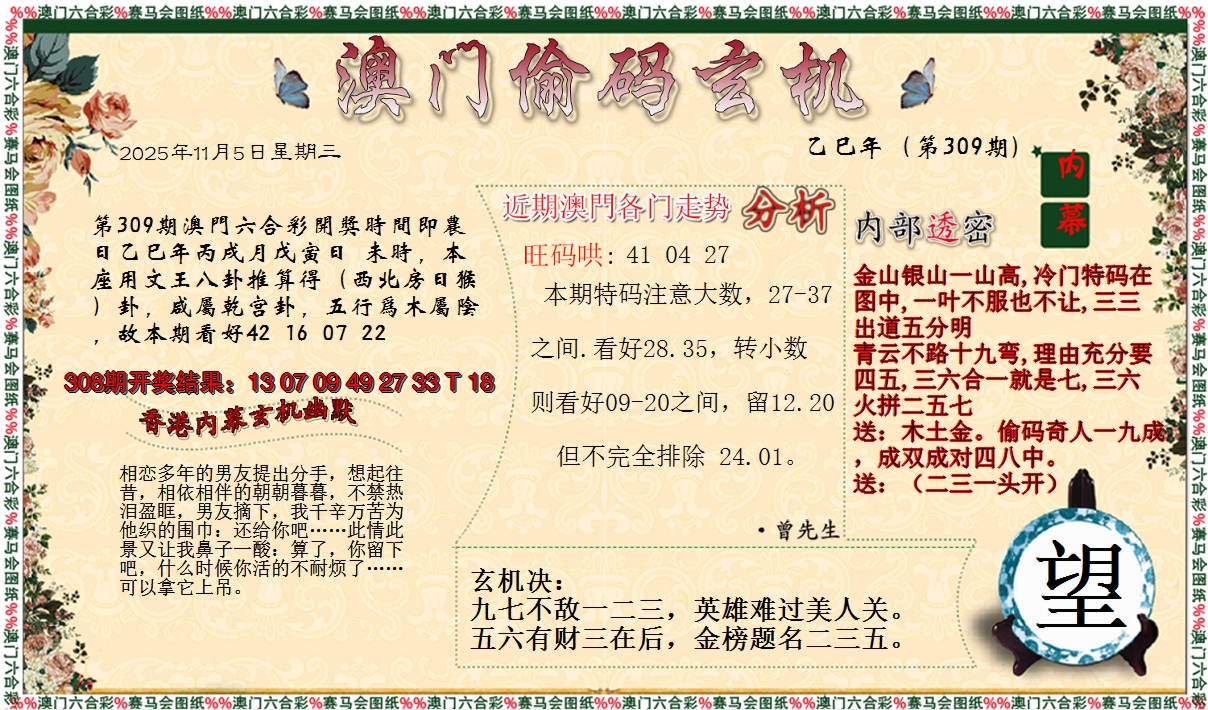 %%澳门六合彩%赛马会图纸%%澳门六合彩%赛马会图纸%%澳门六合彩%赛马会图纸%%澳门六合彩%赛马会图纸%%澳门六合彩%赛马会图纸%%澳门六合彩%赛马会图纸%%
澳门偷码玄机
2025年11月5日星期三
乙巳年（第309期）
内
幕
第309期澳門六合彩開獎時間即農
日乙巳年丙戌月戊寅日 未時，本
座用文王八卦推算得（西北房日猴
）卦，咸屬乾宫卦，五行爲木屬陰
，故本期看好42 16 07 22
308期开奖结果：13 07 09 49 27 33 T 18
香港内幕玄机幽默
相恋多年的男友提出分手，想起往
昔，相依相伴的朝朝暮暮，不禁热
泪盈眶，男友摘下，我千辛万苦为
他织的围巾：还给你吧……此情此
景又让我鼻子一酸：算了，你留下
吧，什么时候你活的不耐烦了……
可以拿它上吊。
近期澳門各门走势 分析
旺码哄: 41 04 27
本期特码注意大数，27-37
之间.看好28.35，转小数
则看好09-20之间，留12.20
但不完全排除 24.01。
·曾先生
内部透密
金山银山一山高,冷门特码在
图中,一叶不服也不让,三三
出道五分明
青云不路十九弯,理由充分要
四五,三六合一就是七,三六
火拼二五七
送：木土金。偷码奇人一九成
，成双成对四八中。
送：（二三一头开）
玄机决：
九七不敌一二三，英雄难过美人关。
五六有财三在后，金榜题名二三五。
望
%%澳门六合彩%赛马会图纸%%澳门六合彩%赛马会图纸%%澳门六合彩%赛马会图纸%%澳门六合彩%赛马会图纸%%澳门六合彩%赛马会图纸%%澳门六合彩%赛马会图纸%%